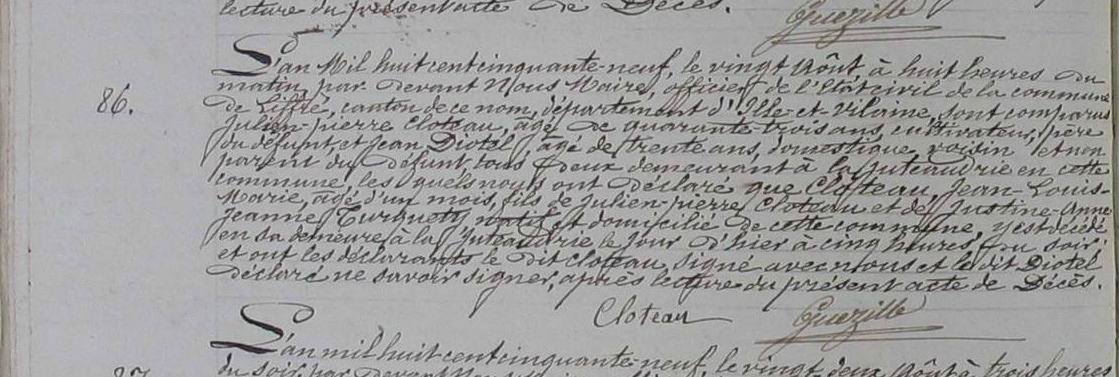 lecture du présent acte de Décès.
Guezille
86.
L'an Mil huit cent cinquante-neuf, le vingt Août, à huit heures du
matin, par devant Nous Maire, officier de l'Etat civil de la commune
de Liffré, canton de ce nom, département d'Ille-et-Vilaine, sont comparus
Julien-pierre Cloteau, âgé de quarante-trois ans, cultivateur, père
du défunt, et Jean Diotel, âgé de trente ans, domestique, voisin et non
parent du défunt, tous deux demeurant à la Juteaudrie en cette
commune, les quels nous ont déclaré que Cloteau, Jean-Louis-
Marie, âgé d'un mois, fils de Julien-pierre Cloteau et de Justine-Anne
Jeanne Turquety, natif et domicilié de cette commune, y est décédé
en sa demeure à la Juteaudrie le jour d'hier à cinq heures du soir
et ont les déclarants le dit Cloteau, signé avec nous et le dit Diotel
déclaré ne savoir signer, après lecture du présent acte de Décès.
Cloteau Guezille
L'an mil huit cent cinquante-neuf, le vingt deux Août à trois heures
du soir, par devant